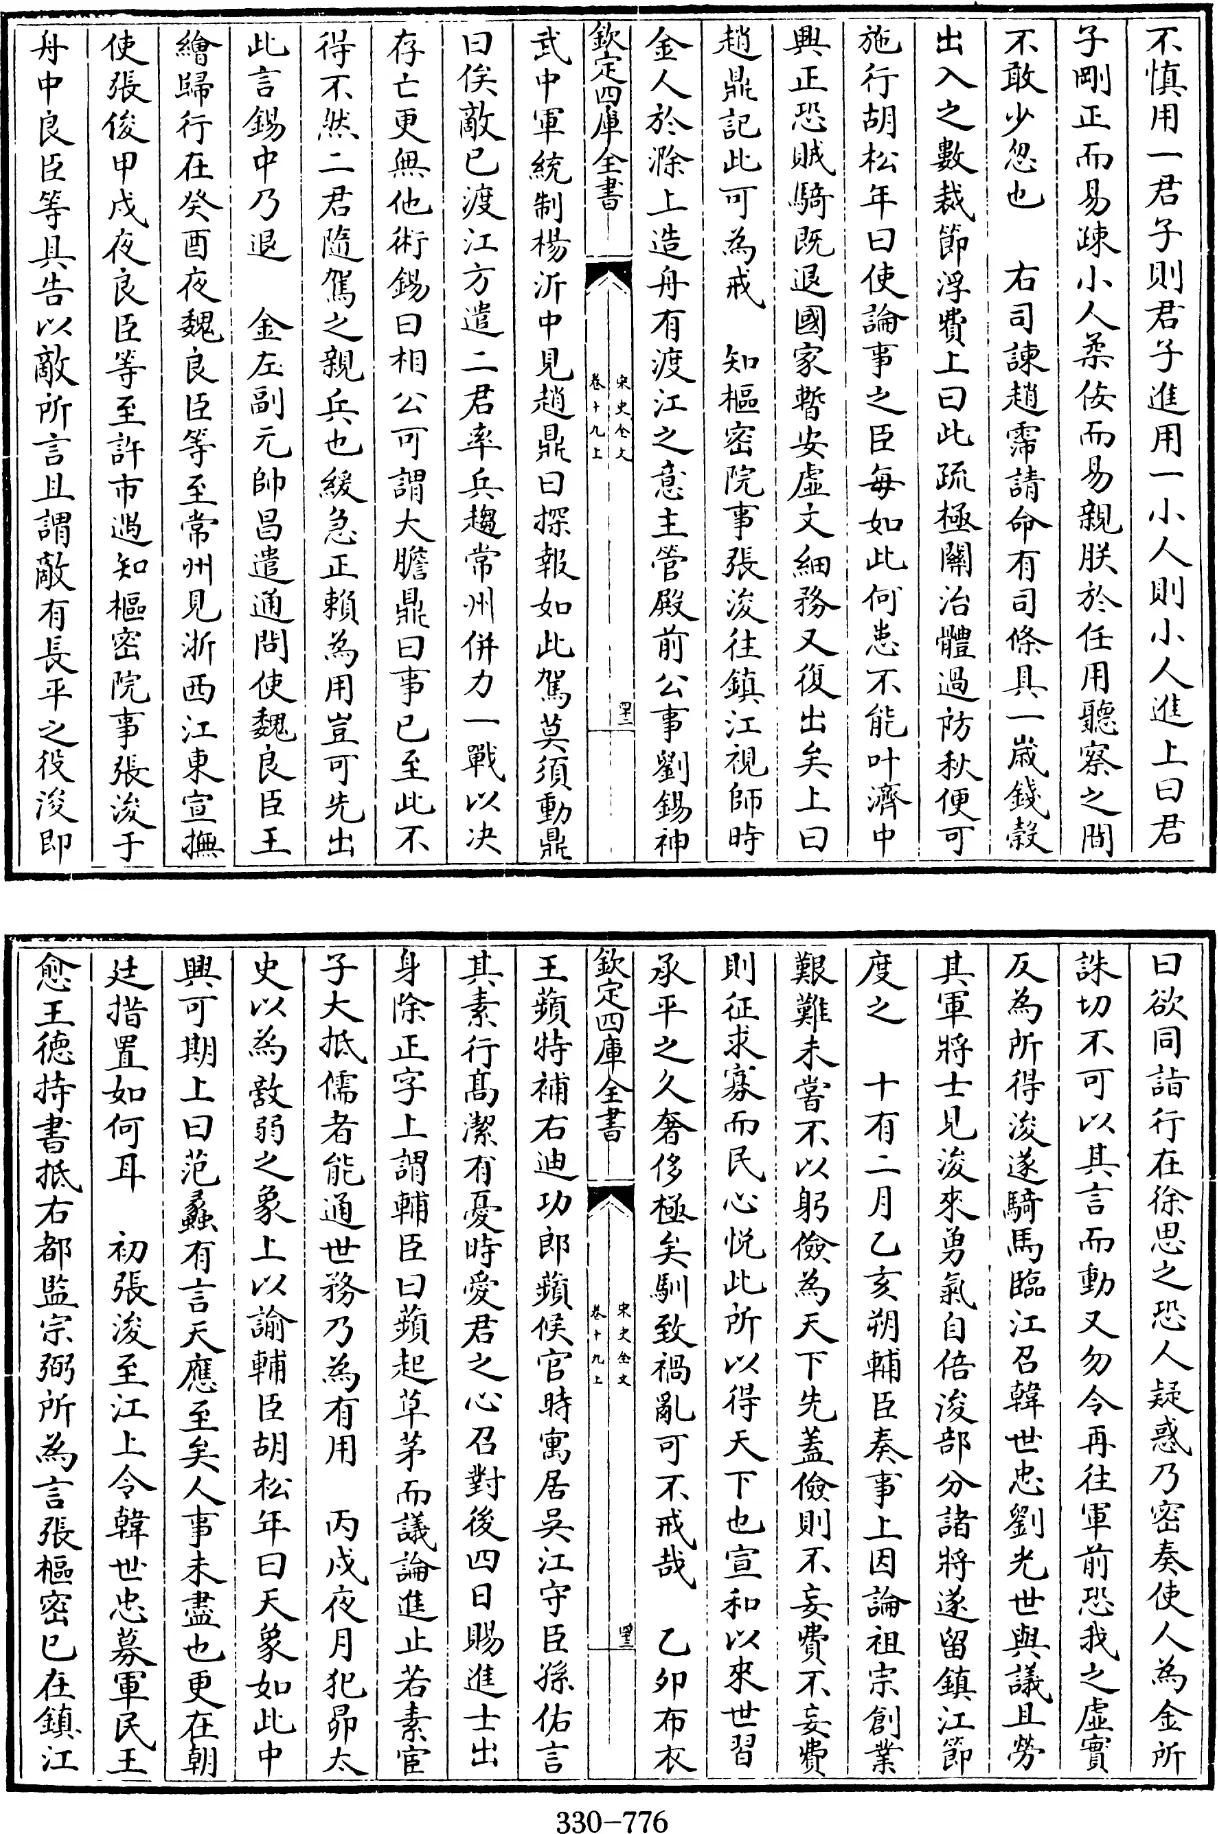 不慎用一君子則君子進用一小人則小人進上曰君
子剛正而易疎小人柔佞而易親朕於任用聽察之間
不敢少忽也　右司諫趙霈請命有司條具一嵗錢穀
出入之數裁節浮費上曰此疏極關治體過防秋便可
施行胡松年曰使論事之臣每如此何患不能叶濟中
興正恐賊騎既退國家暫安虛文細務又復出矣上曰
趙鼎記此可為戒　知樞密院事張浚往鎮江視師時
金人於滁上造舟有渡江之意主管殿前公事劉錫神
欽定四庫全書
宋史全文
卷十九上
四十二
武中軍統制楊沂中見趙鼎曰探報如此駕莫須動鼎
曰俟敵已渡江方遣二君率兵趨常州併力一戰以决
存亡更無他術錫曰相公可謂大膽鼎曰事已至此不
得不然二君隨駕之親兵也緩急正賴為用豈可先出
此言錫中乃退　金左副元帥昌遣通問使魏良臣王
繪歸行在癸酉夜魏良臣等至常州見浙西江東宣撫
使張俊甲戌夜良臣等至許市遇知樞密院事張浚于
舟中良臣等具告以敵所言且謂敵有長平之役浚即
曰欲同詣行在徐思之恐人疑惑乃密奏使人為金所
誅切不可以其言而動又勿令再往軍前恐我之虛實
反為所得浚遂騎馬臨江召韓世忠劉光世與議且勞
其軍將士見浚來勇氣自倍浚部分諸將遂留鎮江節
度之　十有二月乙亥朔輔臣奏事上因論祖宗創業
艱難未嘗不以躬儉為天下先蓋儉則不妄費不妄費
則征求寡而民心悅此所以得天下也宣和以來世習
承平之久奢侈極矣馴致禍亂可不戒哉　乙卯布衣
欽定四庫全書
宋史全文
卷十九上
四十三
王蘋特補右迪功郎蘋候官時寓居吳江守臣孫佑言
其素行高潔有憂時愛君之心召對後四日賜進士出
身除正字上謂輔臣曰蘋起草茅而議論進止若素宦
子大抵儒者能通世務乃為有用　丙戌夜月犯昴太
史以為敵弱之象上以諭輔臣胡松年曰天象如此中
興可期上曰范蠡有言天應至矣人事未盡也更在朝
廷措置如何耳　初張浚至江上令韓世忠募軍民王
愈王德持書抵右都監宗弼所為言張樞密已在鎮江
330-776